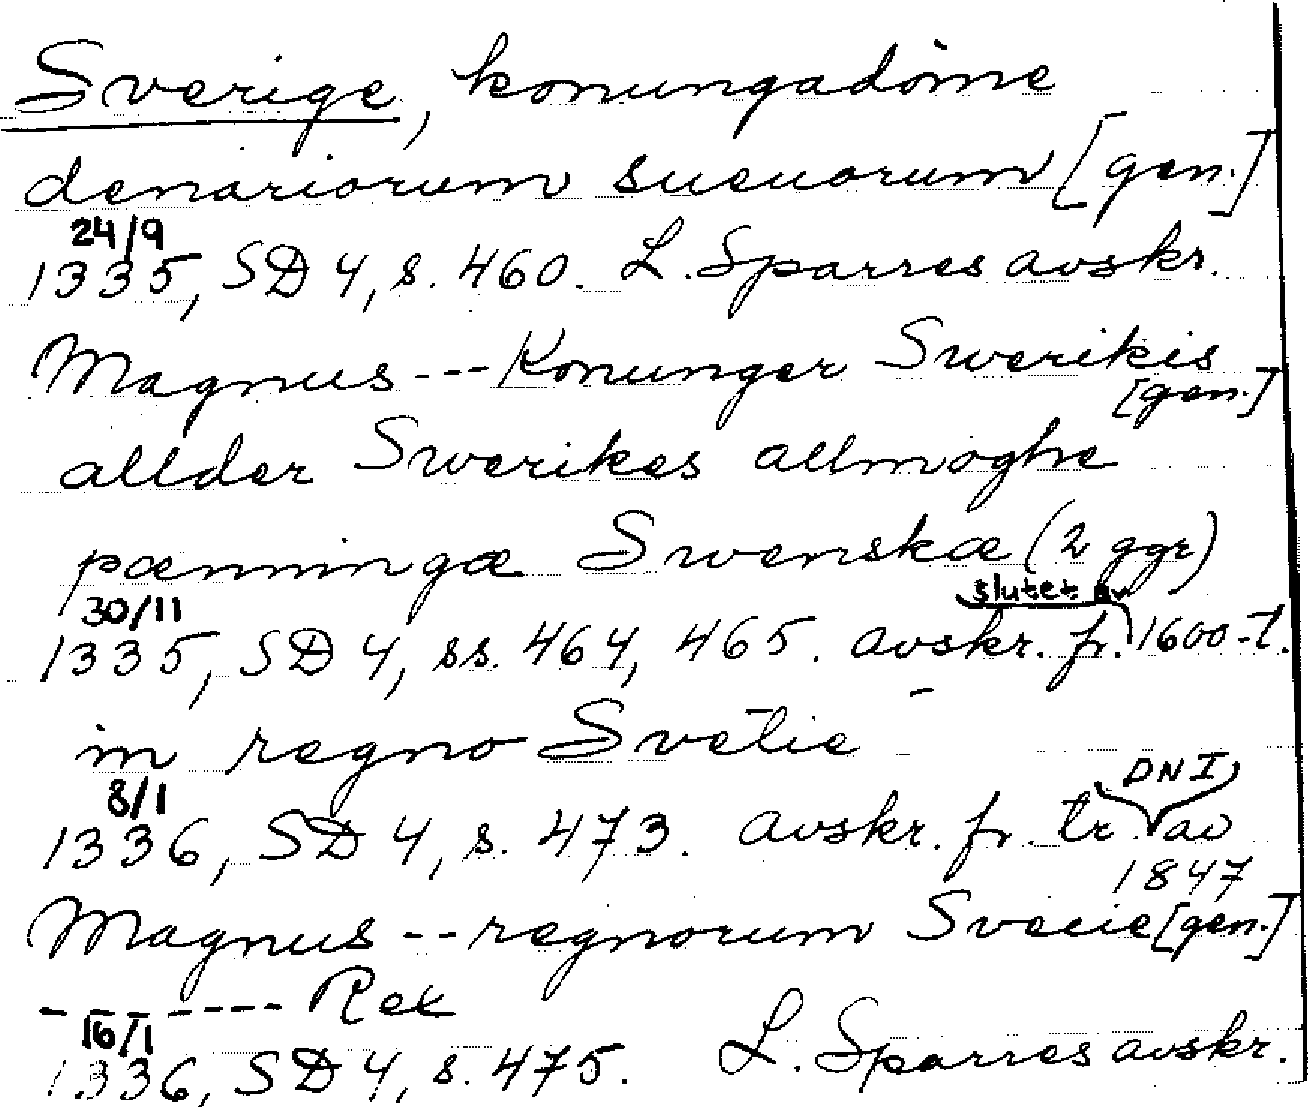 Sverige, konungadöme
denariorum sueuorum [gen.]
24/9
1335, SD 4, s. 460. L. Sparres avskr.
Magnus --- Konunger Swerikis
[gen.]
allder Swerikes allmoghe
pænningæ Swenskæ (2 ggr)
30/11
slutet av
1335, SD 4, ss. 464, 465. avskr. fr. 1600-t.
in regno Svetie
8/1
DN I
1336, SD 4, s. 473. avskr. fr. tr. av
1847
Magnus -- regnorum Svecie [gen.]
--------- Rex
16/1
1336, SD 4, s. 475. L. Sparres avskr.